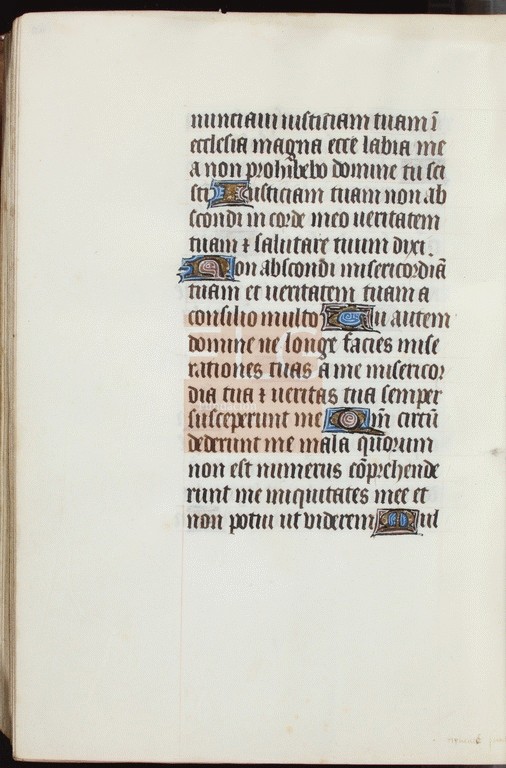 nunciaui iusticiam tuam ī
ecclesia magna ecce labia me
a non prohibebo domine tu sci
sti Iusticiam tuam non ab
scondi in corde meo ueritatem
tuam ⁊ salutare tuum dixi
Non abscondi misericordiā
tuam et ueritatem tuam a
consilio multo Tu autem
domine ne longe facies mise
rationes tuas a me misericor
dia tua ⁊ ueritas tua semper
susceperunt me Qm̄ circū
dederunt me mala quorum
non est numerus cōprehende
runt me iniquitates mee et
non potui ut viderem Mul